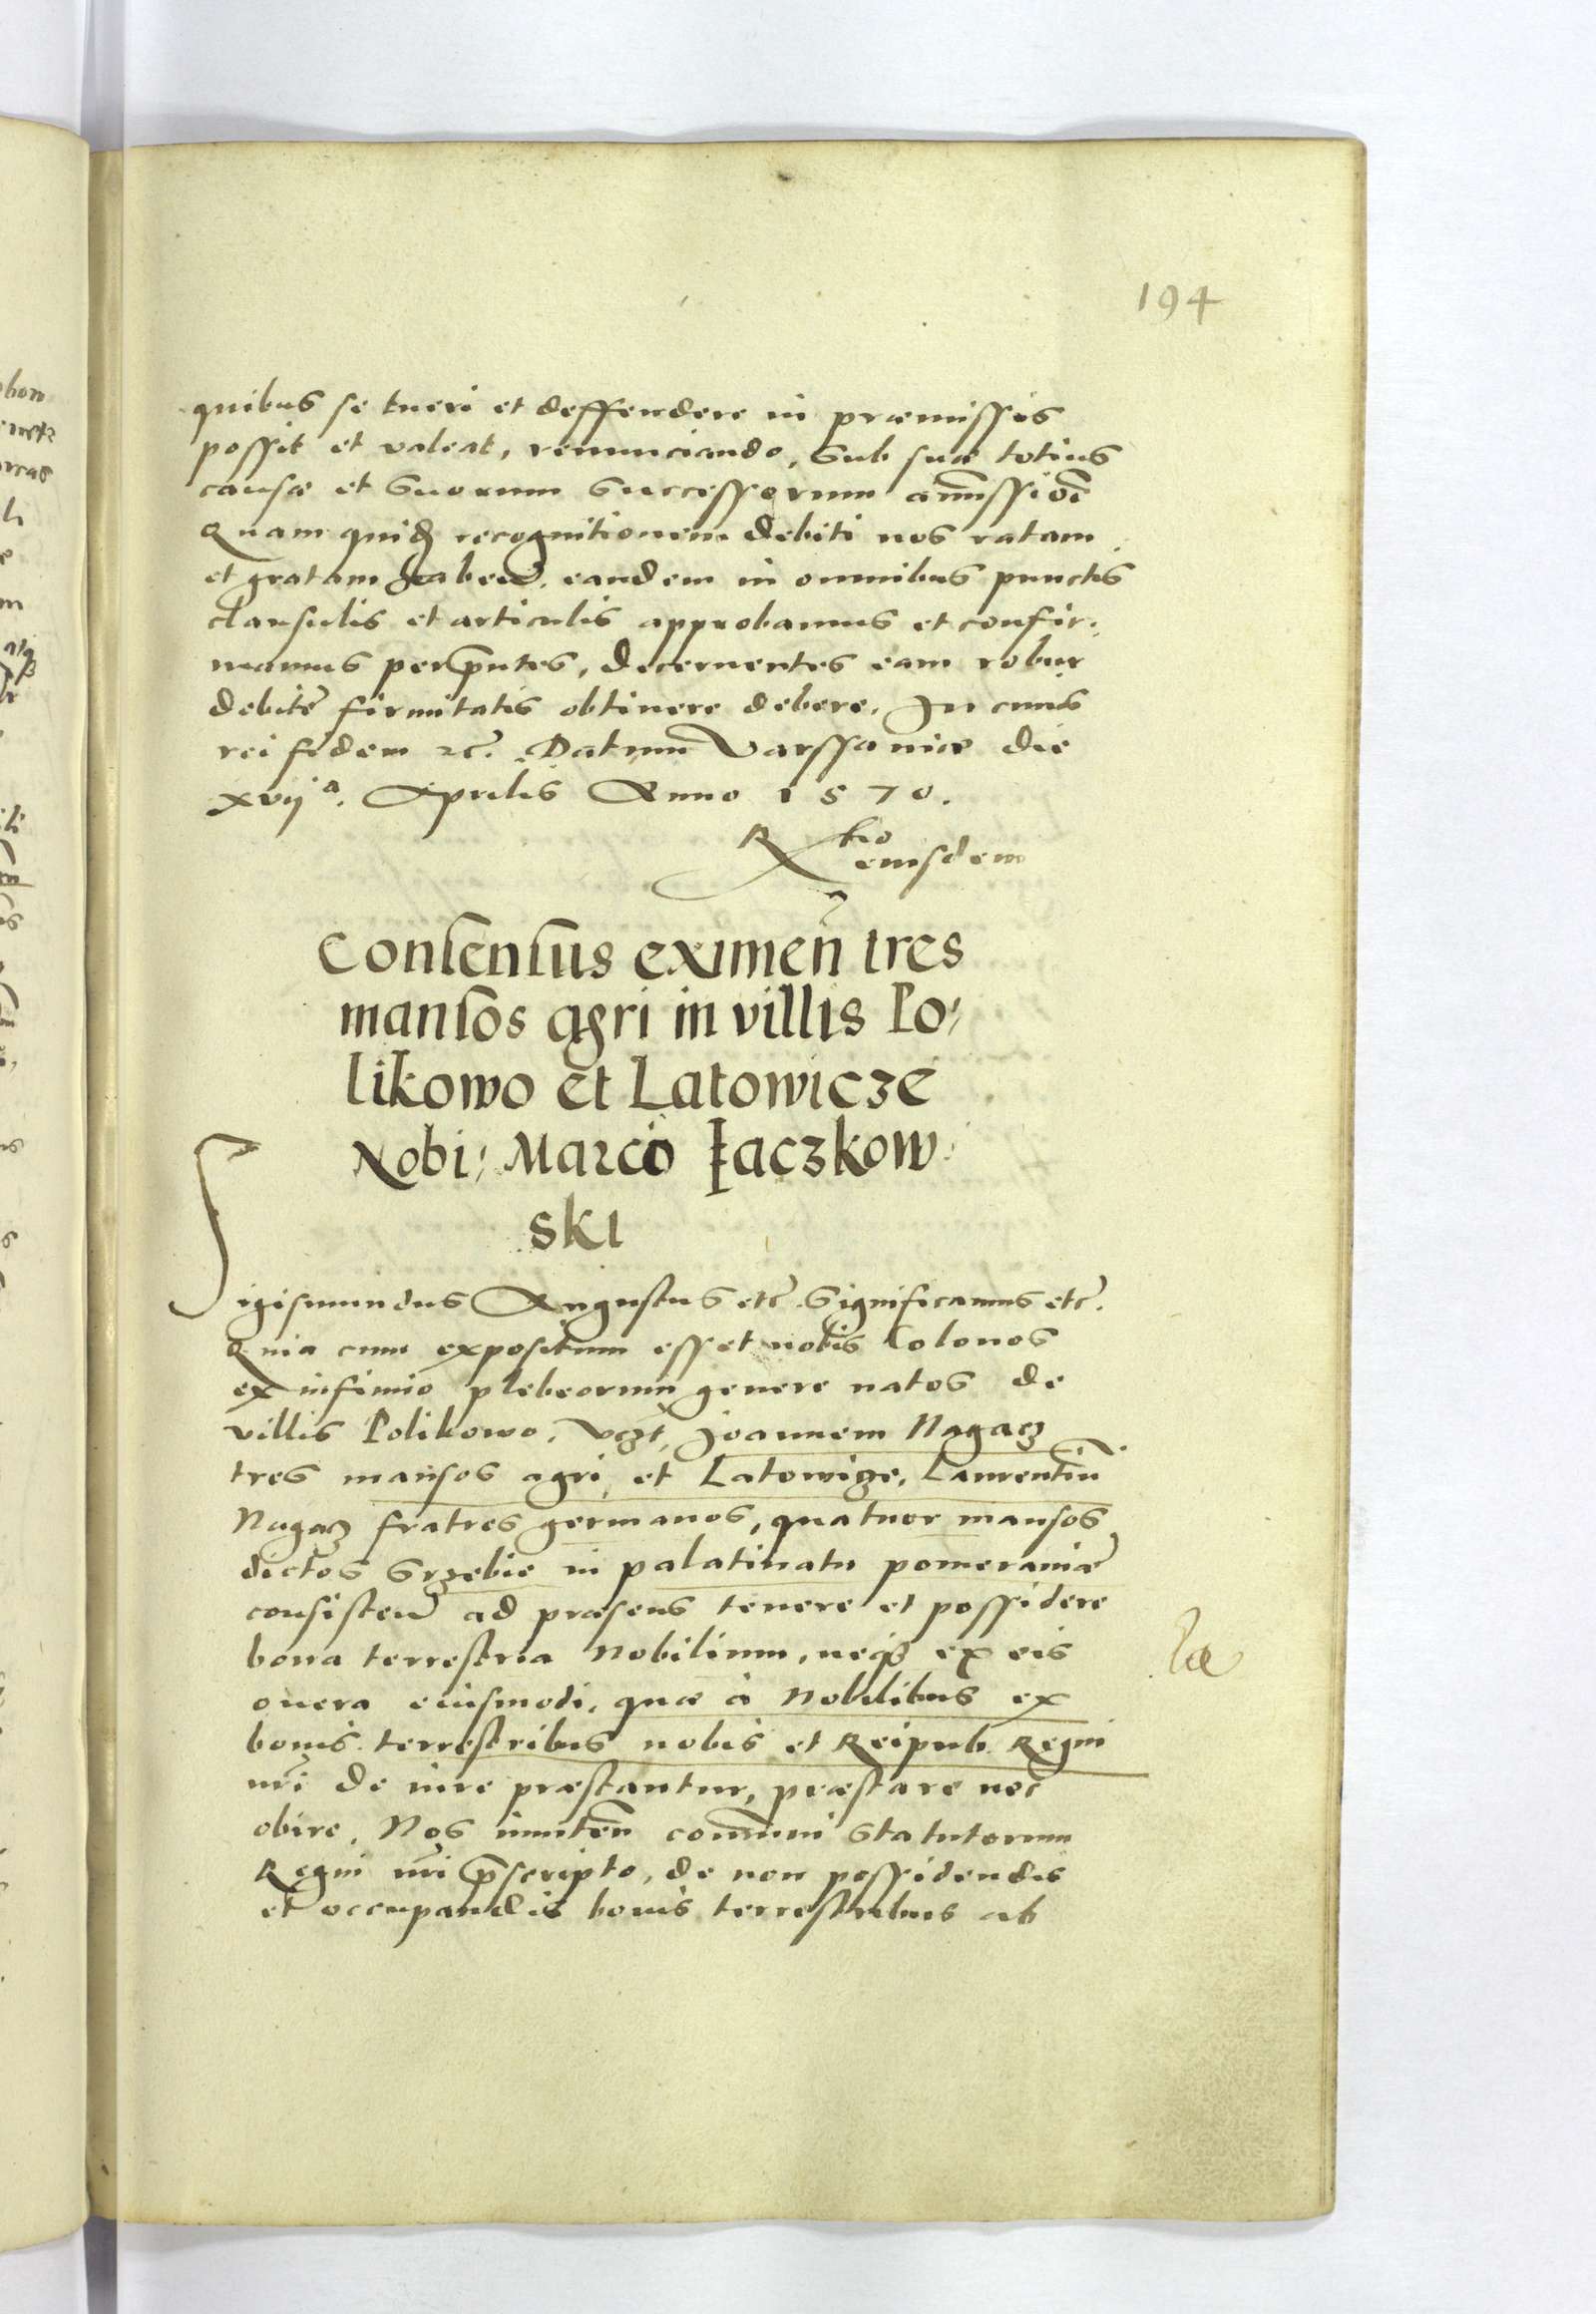 194
quibus se tueri et deffendere in præmissis
possit et valeat, renunciando, sub suæ totius
causæ et suorum successorum amissiōe
Quam quidē recognitionem debiti nos ratam
et gratam haben̄. eandem in omnibus punctis
clausulis et articulis approbamus et confir-
mamus per p̄ntes, decernentes eam robur
debitę firmitatis obtinere debere. In cuius
rei fidem etc̄. Datum Varssaviæ die
xvijª. Aprilis Anno 1570.
Rtio eiusdem
Consensus eximen̄ tres
mansos agri in villis Po,
likowo et Latowicze
Nobi: Marco Jaczkow
ski
Sigismundus Augustus etc̄ Significamus etc̄.
Quia cum expositum esset nobis Colonos
ex infimo plebeorum genere natos de
villis Polikowo. vczt, Joannem Nagacz
tres mansos agri, et Latowicze, Laurentiū
Nagacz fratres germanos, quatuor mansos
dictos Grzebie in palatinatu pomeraniæ
consisten̄ ad præsens tenere et possidere
bona terrestria Nobilium, neqȝ ex eis
onera eiusmodi, quæ à Nobilibus ex
bonis terrestribus nobis et Reipub. Regni
nr̄i de iure præstantur, præstare nec
obire. Nos inniten̄ com̄uni statutorum
Regni nr̄i p̄scripto, de non possidendis
et occupandis bonis terrestribus ab